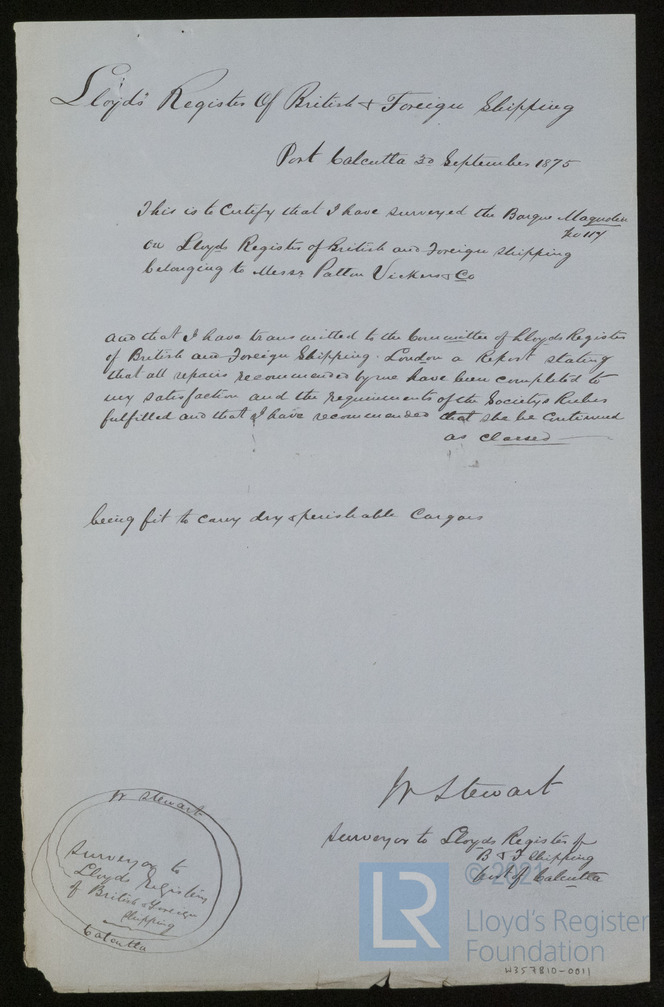 Lloyd's Register Of British & Foreign Shipping
Port Calcutta 30 September 1875
This is to Certify that I have surveyed the Barque
No 117
on Lloyds Register of British and Foreign Shipping
belonging to Messrs Patton Vickers & Co
and that I have transmitted to the Committee of Lloyds Register
of British and Foreign Shipping. London a Report stating
that all repairs recommended by me have been completed to
my satisfaction and the requirements of the Societys Rules
fulfilled and that I have recommended that she be Continued
as classed
being fit to carry dry & perishable Cargoes
W Stewart
Surveyor to Lloyds Register for
B & F Shipping
Port of Calcutta
W Stewart
Surveyor to
Lloyds Register
of British & Foreign
Shipping
Calcutta
LR
© 2021
Lloyd's Register
Foundation
W357810-0011